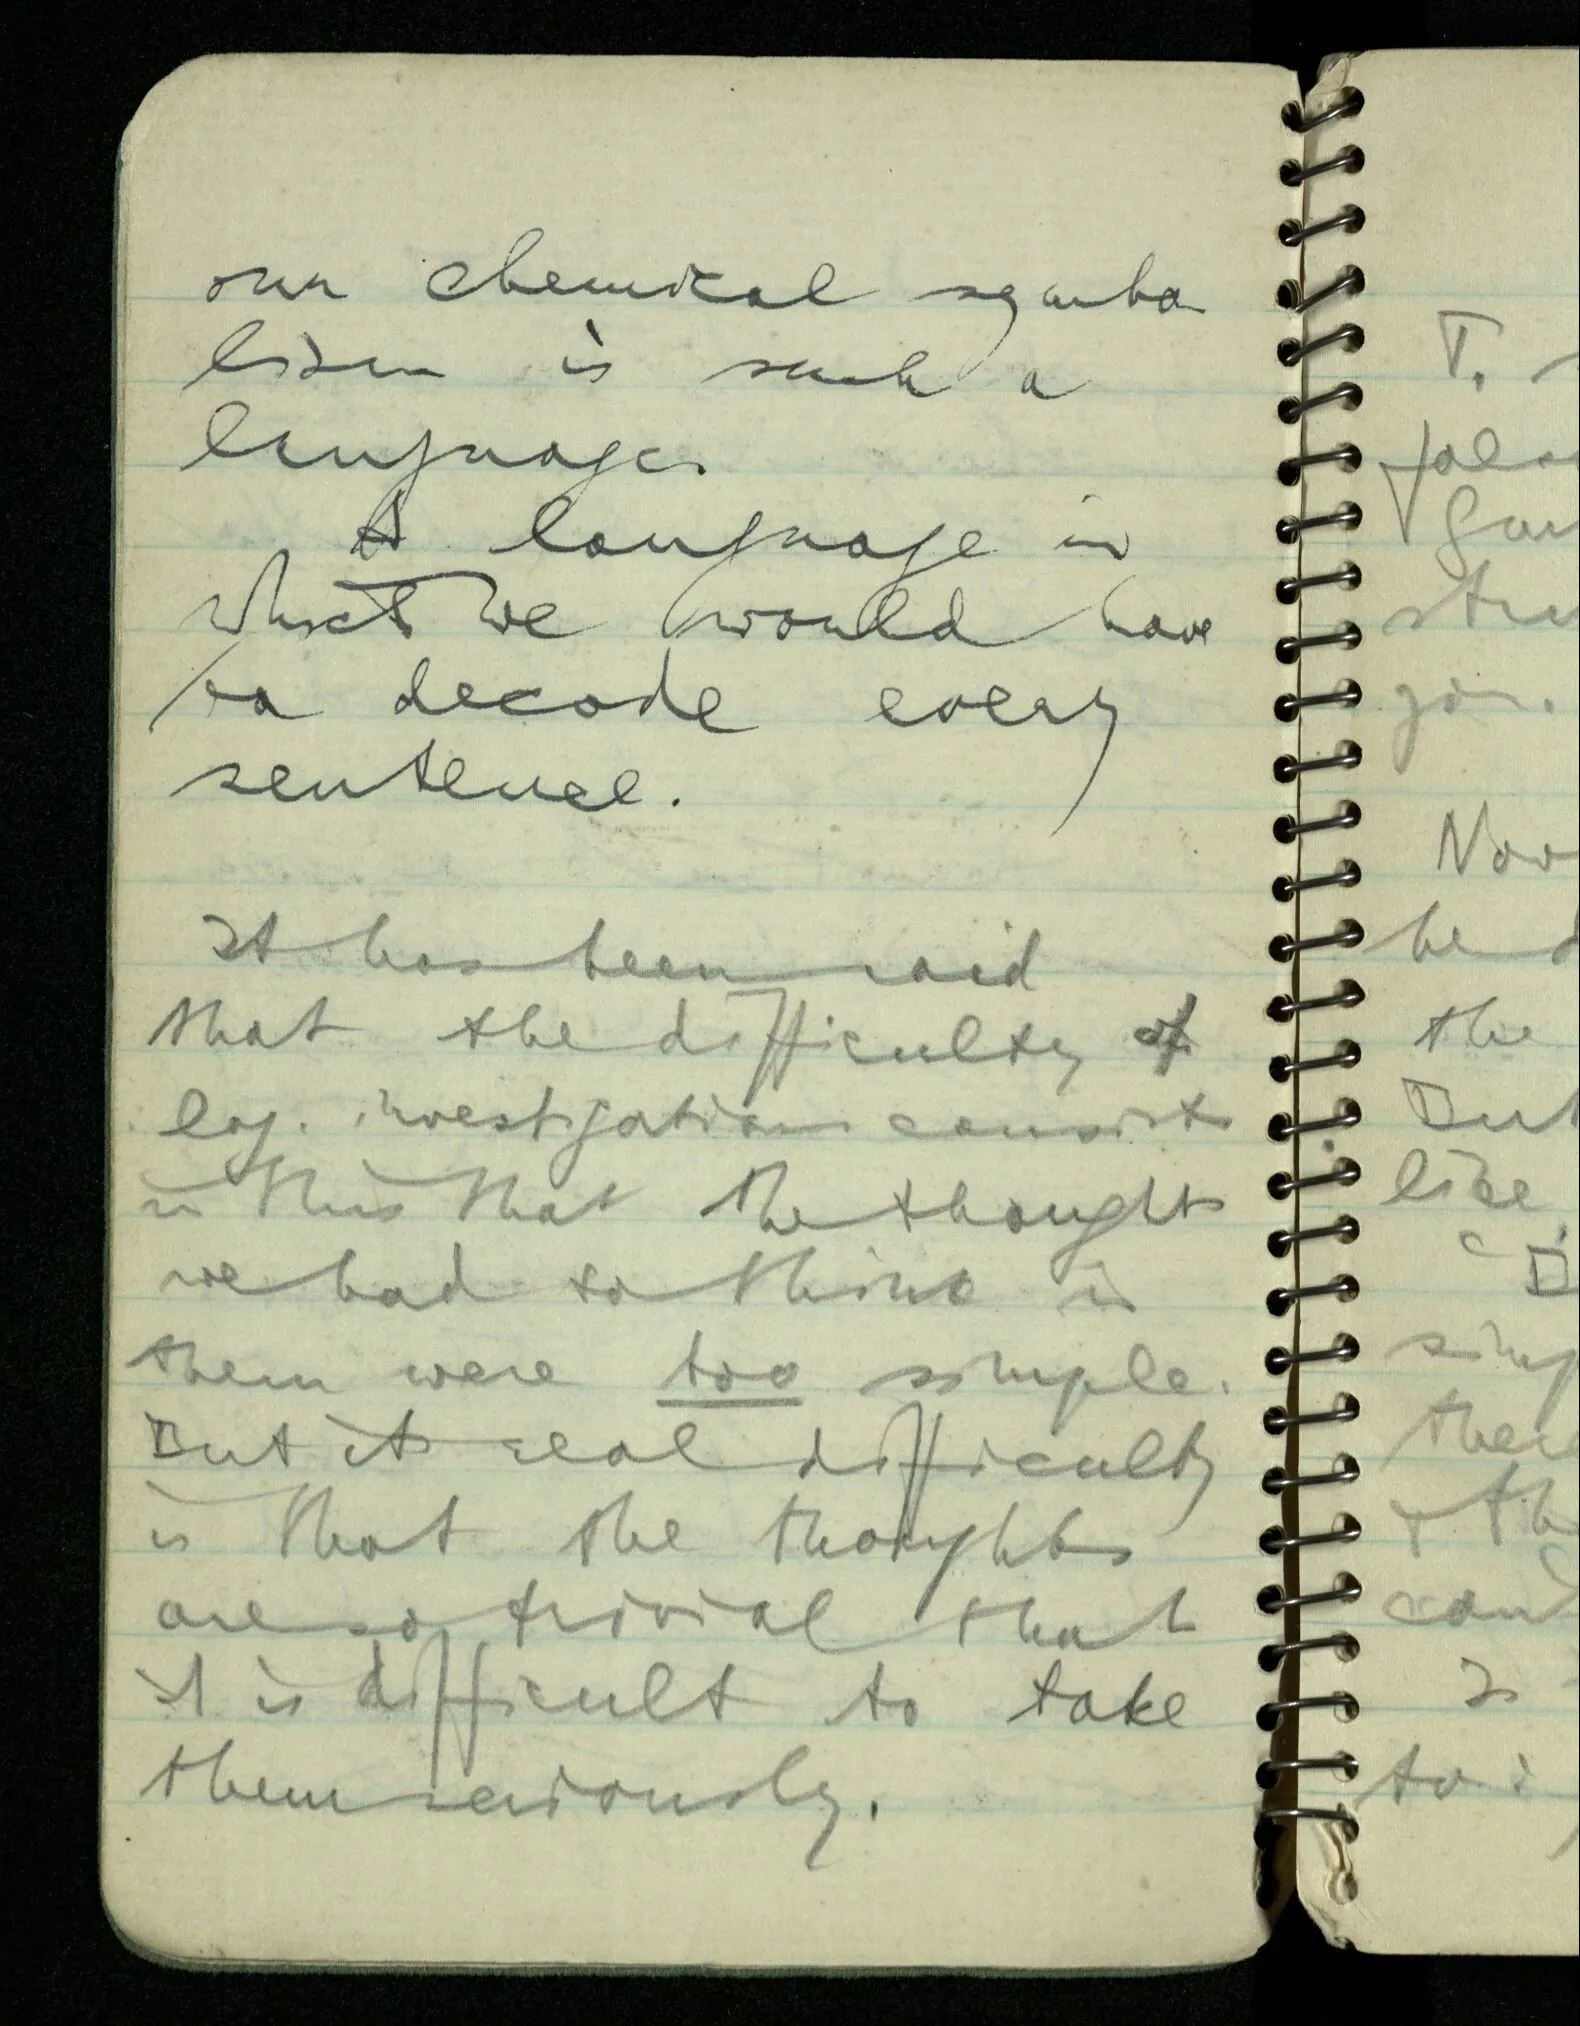 our chemical symbo
lism is such a
language.
A language in
which we would have
to decode every
sentence.
It has been said
that the difficulty of
log. investigations consists
in this that the thoughts
we had to think in
them were too simple.
But its real difficulty
is that the thoughts
are so trivial that
it is difficult to take
them seriously.
T.
stru
Now
be
the
But
like
simp
to